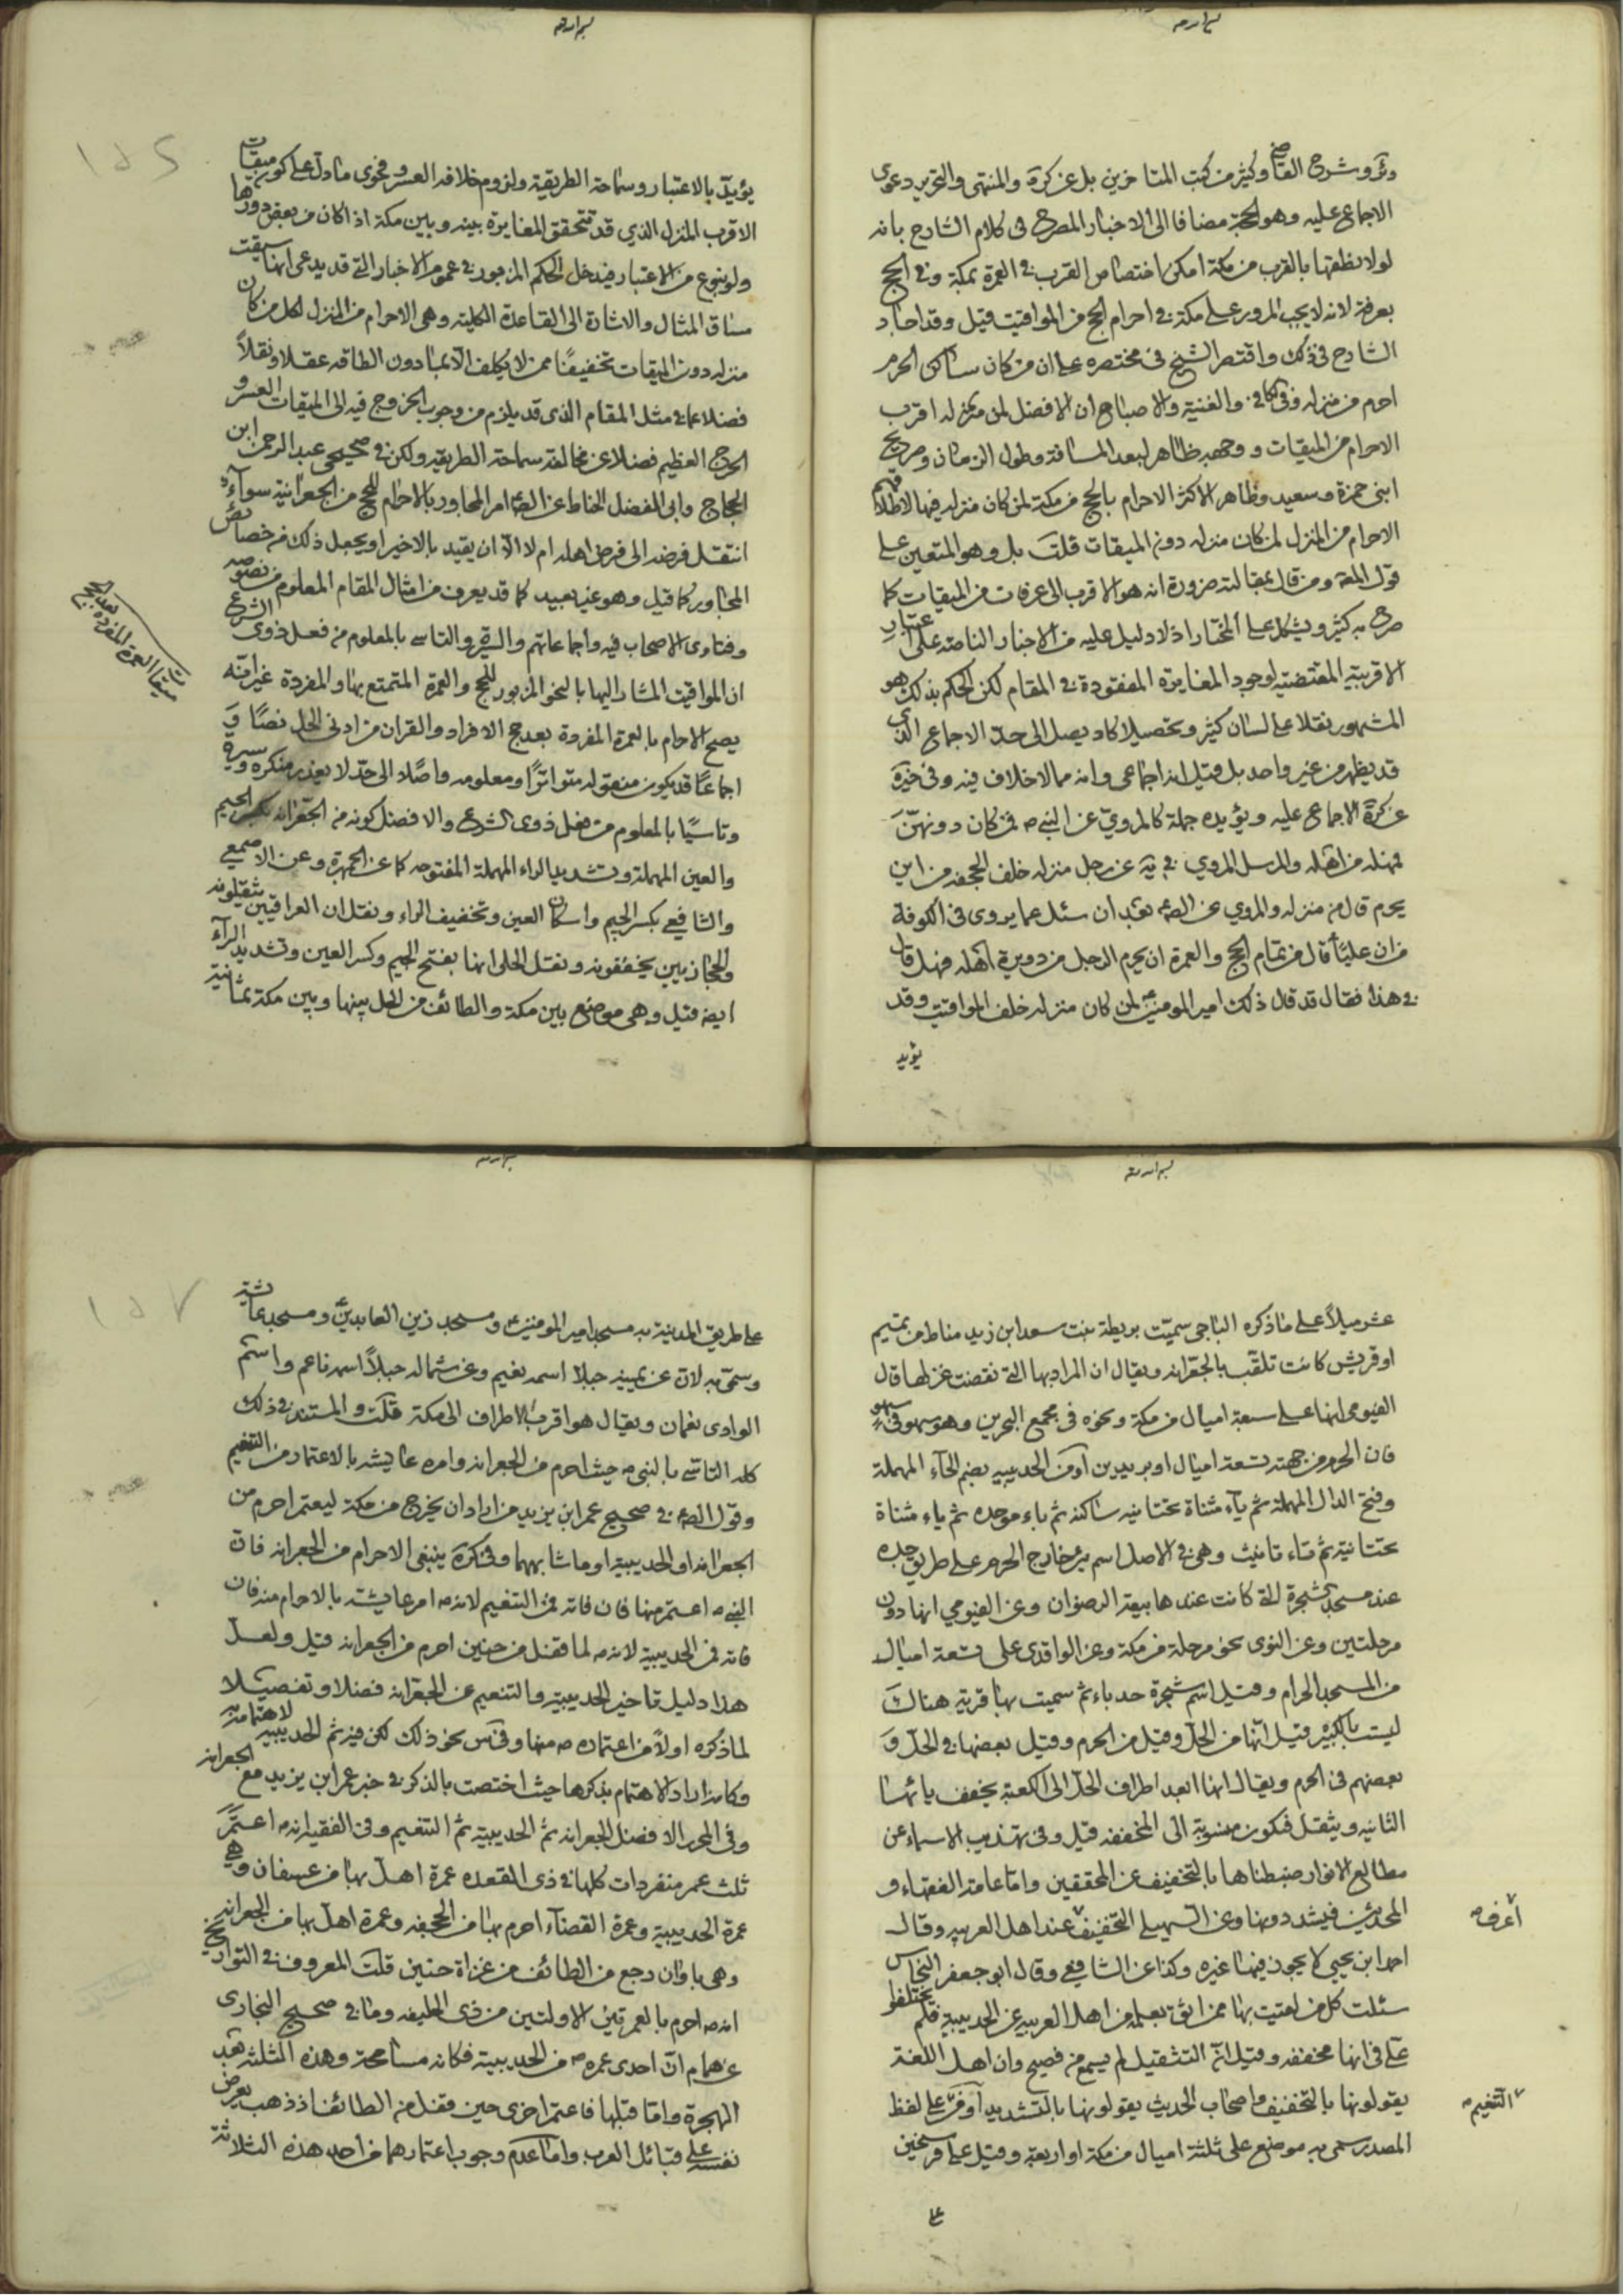 وشرح القاضي وكثير من كتب المتاخرين بل عن كره والمنتهى والتحرير دعوى
الاجماع عليه وهو الحجة مضافا الى الاخبار المصرح في كلام الشارح بانه
لولا نطقها بالقرب من مكة امكن اختصاص القرب في العمرة بمكة وفي الحج
بعرفة لانه لا يجب المرور على مكة في احرام الحج من المواقيت قيل وقد اجاد
الشارح في ذلك واقتصر الشيخ في مختصره على ان من كان ساكن الحرم
احرم من منزله وفي الكافي والغنية والاصباح ان الافضل لمن منزله اقرب
الاحرام من الميقات ووجهه ظاهر لبعد المسافة وطول الزمان وصريح
ابني حمزة وسعيد وظاهر الاكثر الاحرام بالحج من مكة لمن كان منزله فيها لاطلاقهم
الاحرام من المنزل لمن كان منزله دون الميقات قلت بل وهو المتعين على
قول اللمعة ومن قال بمقالته ضرورة انه هو الاقرب الى عرفات من الميقات كما
صرح به كثير ويشكل على المختار اذ لا دليل عليه من الاخبار الناصة على اعتبار
الاقربية المقتضية لوجود المغايرة المفقودة في المقام لكن الحكم بذلك هو
المشهور نقلا على لسان كثير وتحصيلا كاد يصل الى حد الاجماع الذي
قد يظهر من غير واحد بل قيل انه اجماعي وانه مما لا خلاف فيه وفي خيره
عن كره الاجماع عليه ويؤيده جملة كالمروي عن النبي ص فمن كان دونهن
فمهله من اهله والمرسل المروي في يه عن رجل منزله خلف الجحفة من اين
يحرم قال من منزله والمروي عن الصم بعد ان سئل عما يروى في الكوفة
من ان عليا ع قال من تمام الحج والعمرة ان يحرم الرجل من دويرة اهله فهل قال
ع هذا فقال قد قال ذلك امير المومنين ع لمن كان منزله خلف المواقيت وقد
يؤيد
يؤيد بالاعتبار وسماحة الطريقة ولزوم خلافه العسر وفحوى ما دل على كون ميقات
الاقرب المنزل الذي قد تتحقق المغايرة بينه وبين مكة اذا كان من بعض دورها
ولو بنوع من الاعتبار فيدخل الحكم المزبور في عموم الاخبار التي قد يدعى انها سيقت
مساق المثال والاشارة الى القاعدة الكلية وهي الاحرام من المنزل لكل من كان
منزله دون الميقات تخفيفا ممن لا يكلف الا بما دون الطاقة عقلا ونقلا
فضلا عما في مثل المقام الذي قد يلزم من وجوب الخروج فيه الى الميقات العسر و
الحرج العظيم فضلا عن مخالفته سماحة الطريقة ولكن في صحيحي عبد الرحمن ابن
الحجاج وابي الفضل الحناط عن الصم امر المجاور بالاحرام للحج من الجعرانة سواء
انتقل فرضه الى فرض اهله ام لا الا ان يقيد بالاخير او يجعل ذلك من خصائص
المجاور كما قيل وهو غير بعيد كما قد يعرف من امثال المقام المعلوم من نصوصه
وفتاوى الاصحاب فيه واجماعاتهم والسيرة والتاسي بالمعلوم من فعل ذوى الشرع
ان المواقيت المشار اليها بالنحو المزبور للحج والعمرة المتمتع بها والمفردة غير انه
يصح الاحرام بالعمرة المفردة بعد حج الافراد والقران من ادنى الحل نصا و
اجماعا قد يكون منقوله متواترا ومعلومه واصلا الى حد لا يعذر منكره وسيرة
وتاسيا بالمعلوم من فعل ذوى الشرع والافضل كونه من الجعرانة بكسر الجيم
والعين المهملة وتشديد الراء المهملة المفتوحه كما عن الجمهرة وعن الاصمعي
والشافعي بكسر الجيم واسكان العين وتخفيف الراء ونقل ان العراقيين يثقلونه
والحجازيين يخففونه ونقل الحلي انها بفتح الجيم وكسر العين وتشديد الراء
ايضا قيل وهي موضع بين مكة والطائف من الحل بينها وبين مكة ثمانية
ميقات العمرة المفردة بعد الحج
عشر ميلا على ما ذكره الباجي سميت بريطة بنت سعد ابن زيد مناط من تميم
او قريش كانت تلقب بالجعرانه ويقال ان المراد بها التي نقضت غزلها قال
الفيومي انها على سبعة اميال من مكة ونحوه في مجمع البحرين وهو سهو في سهو
فان الحرم من جهته تسعة اميال او بريدين او من الحديبيه بضم الحاء المهملة
وفتح الدال المهملة ثم ياء مثناة تحتانية ساكنة ثم باء موحده ثم ياء مثناة
تحتانية ثم تاء تانيث وهي في الاصل اسم بئر خارج الحرم على طريق جده
عند مسجد الشجرة التي كانت عندها بيعة الرضوان وعن الفيومي انها دون
مرحلتين وعن النوى نحو مرحلة من مكة وعن الواقدى على تسعة اميال
من المسجد الحرام وقيل اسم شجرة حدباء ثم سميت بها قرية هناك
ليست بالكبيره قيل انها من الحل وقيل من الحرم وقيل بعضها في الحل و
بعضهم في الحرم ويقال انها ابعد اطراف الحل الى الكعبة يخفف يائها
الثانيه ويثقل فيكون منسوبة الى المخففه قيل وفي تهذيب الاسماء عن
مطالع الانوار ضبطناها بالتخفيف عن المحققين واما عامة الفقهاء و
المحدثين فيشددونها وعن السهيلي التخفيف عند اهل العربيه وقال
اعرف ص
احمد ابن يحيى لا يجوز فيها غيره وكذا عن الشافعي وقال ابو جعفر النحاس
سئلت كل من لقيت بها ممن اثق بعلمه من اهل العربيه عن الحديبية فلم يختلفوا
على في انها مخففه وقيل ان التثقيل لم يسمع من فصيح وان اهل اللغة
يقولونها بالتخفيف واصحاب الحديث يقولونها بالتشديد او من على لفظ
التنعيم ص
المصدر سمى به موضع على ثلثة اميال من مكة او اربعة وقيل على فرسخين
على
على طريق المدينة به مسجد امير المومنين ع ومسجد زين العابدين ع ومسجد عائشه
وسمى به لان عن يمينه جبلا اسمه نعيم وعن شماله جبلا اسمه ناعم واسم
الوادى نعمان ويقال هو اقرب الاطراف الى مكة قلت والمستند في ذلك
كله التاسى بالنبى ص حيث احرم من الجعرانه وامره عائشه بالاعتمار من التنعيم
وقول الصم في صحيح عمر ابن يزيد من اراد ان يخرج من مكة ليعتمر احرم من
الجعرانه او الحديبية او ما شابههما وفي كره ينبغى الاحرام من الجعرانه فان
النبي ص اعتمر منها فان فاته فمن التنعيم لانه ص امر عايشه بالاحرام منه فان
فاته فمن الحديبية لانه ص لما قفل من حنين احرم من الجعرانه قيل ولعل
هذا دليل تاخير الحديبية والتنعيم عن الجعرانه فضلا وتفصيلا
لما ذكره اولا من اعتماره ص منها وفي س نحو ذلك لكن فيه ثم الحديبيه لاهتمامه به
وكانه اراد الاهتمام بذكرها حيث اختصت بالذكر في خبر عمر ابن يزيد مع الجعرانه
وفي التحرير الافضل الجعرانه ثم الحديبية ثم التنعيم وفي الفقيه انه ص اعتمر
ثلث عمر متفرقات كلها في ذى القعده عمرة اهل بها من عسفان وهي
عمرة الحديبية وعمرة القضآء احرم بها من الجحفه وعمرة اهل بها من الجعرانه
وهي باوان رجع من الطائف من غزاة حنين قلت المعروف في التواريخ
انه ص احرم بالعمرتين الاولتين من ذى الحليفه وما في صحيح البخارى
عن همام ان احدى عمره ص من الحديبية فكانه مسامحة وهذه الثلثه بعد
الهجرة واما قبلها فاعتمر اخرى حين قفل من الطائف اذ ذهب يعرض
نفسه على قبائل العرب واما عدم وجوب اعتمارهما من احد هذه الثلاثة